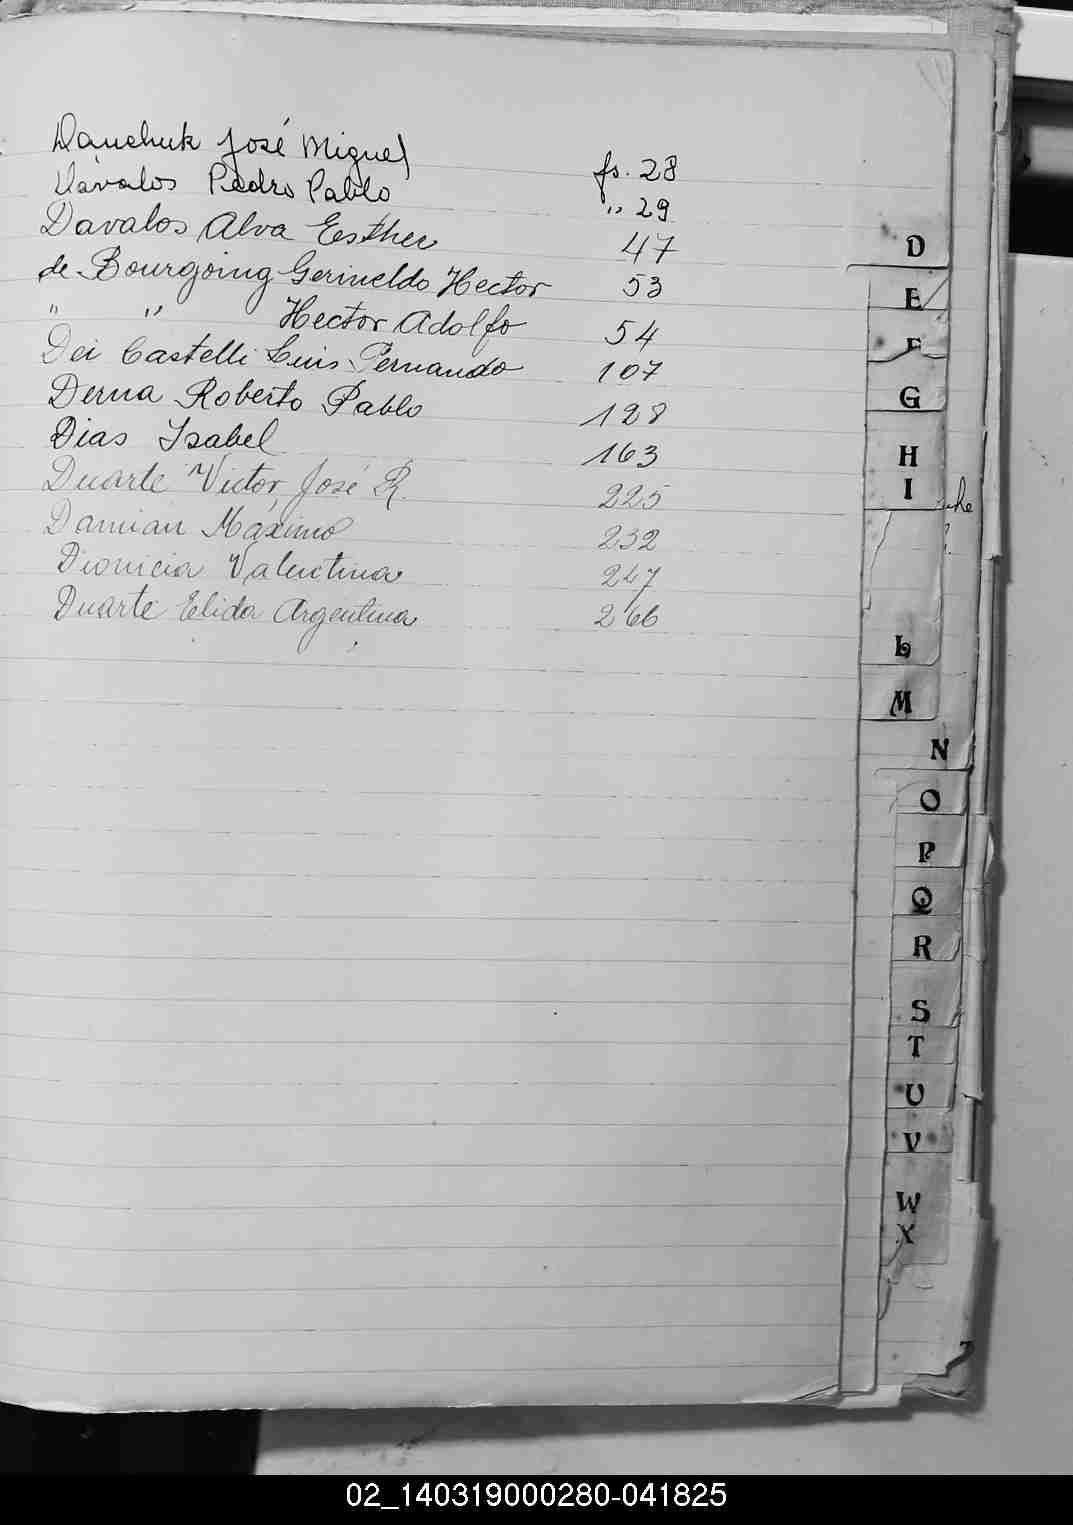 Danchuk José Miguel fs. 28
Dávalos Pedro Pablo " 29
Davalos Alva Esther 47
de Bourgoing Gerineldo Hector 53
" " Hector Adolfo 54
Dei Castelli Luis Fernando 107
Derna Roberto Pablo 128
Dias Isabel 163
Duarte Victor José R. 225
Damian Máximo 232
Dionicia Valentina 247
Duarte Elida Argentina 266
D
E
F
G
H
I
L
M
N
O
P
Q
R
S
T
U
V
W
X
02_140319000280-041825